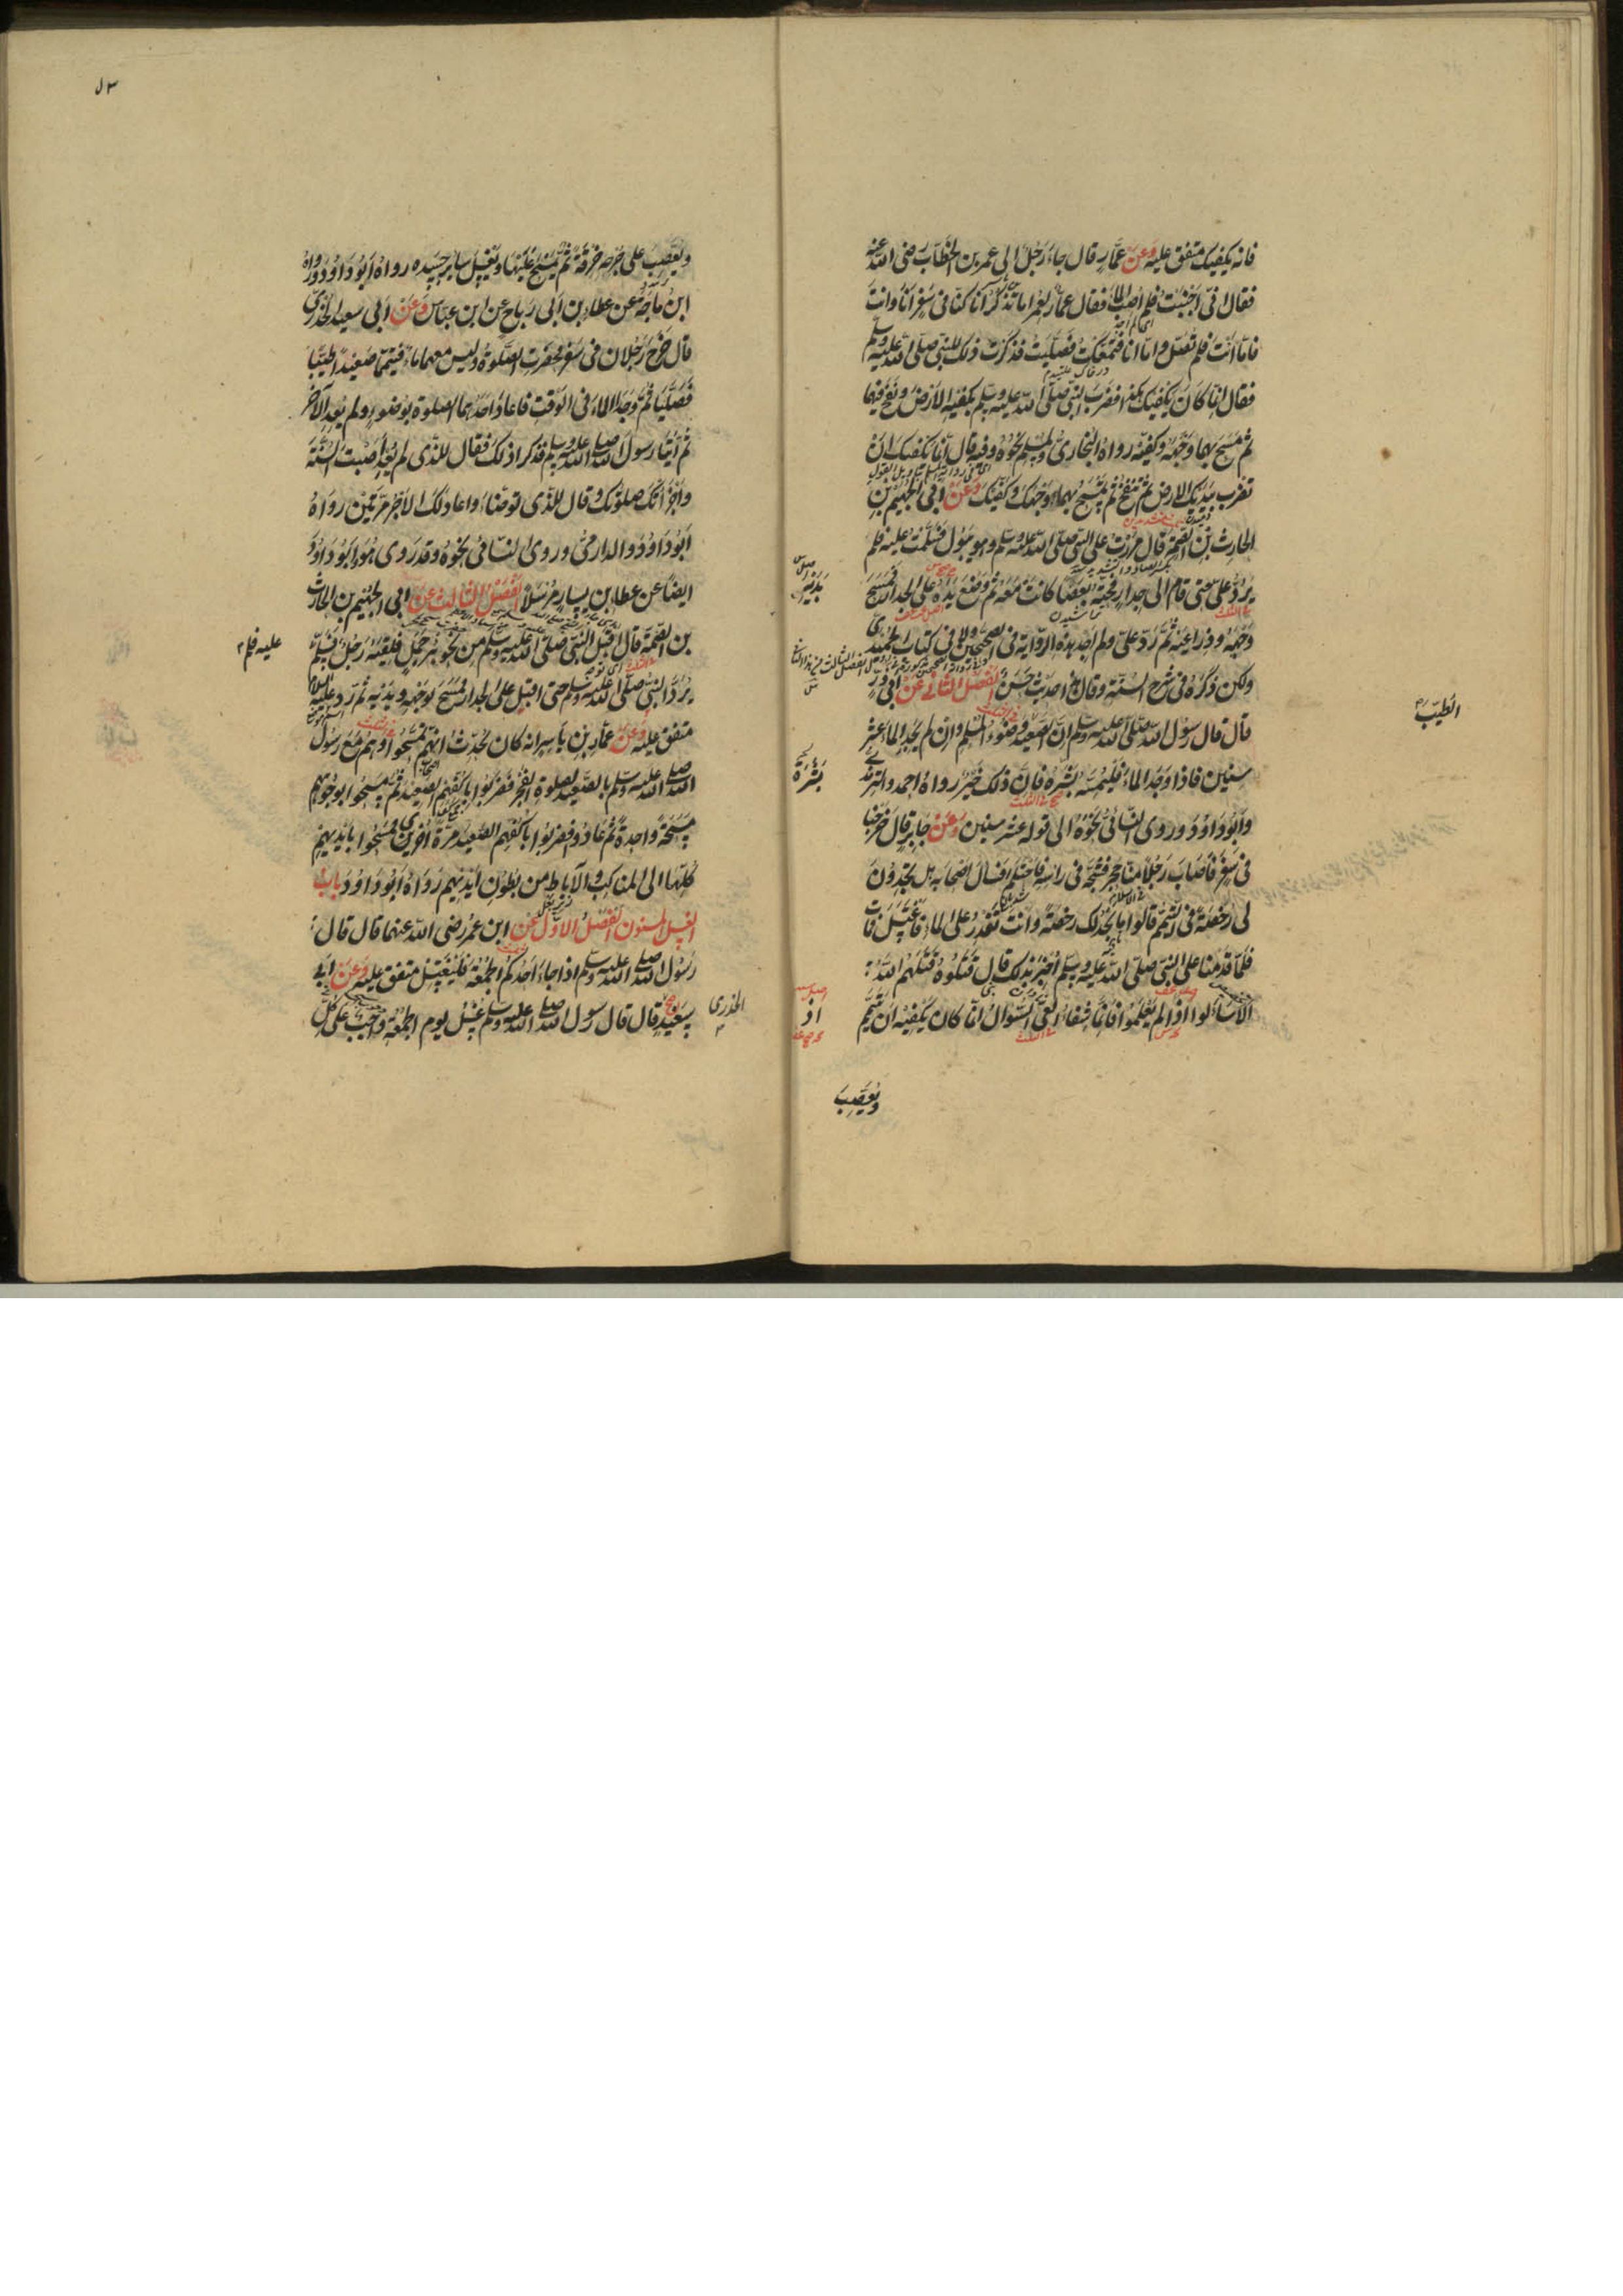 فانه يكفيك متفق عليه وعن عمار قال جاء رجل الى عمر بن الخطاب رضى الله عنه
فقال انى اجنبت فلم اصب الماء فقال عمار لعمر اما تذكر انا كنا فى سفر انا وانت
فاما انت فلم تصل واما انا فتمعكت فصليت فذكرت ذلك للنبى صلى الله عليه وسلم
فقال انما كان يكفيك هكذا فضرب النبى صلى الله عليه وسلم بكفيه الارض ونفخ فيهما
ثم مسح بهما وجهه وكفيه رواه البخارى ولمسلم نحوه وفيه قال انما يكفيك ان
تضرب بيديك الارض ثم تنفخ ثم تمسح بهما وجهك وكفيك وعن ابى الجهيم بن
الحارث بن الصمة قال مررت على النبى صلى الله عليه وسلم وهو يبول فسلمت عليه فلم
يرد على حتى قام الى جدار فحته بعصا كانت معه ثم وضع يده على الجدار فمسح
وجهه وذراعيه ثم رد على ولم اجد هذه الرواية فى الصحيحين ولا فى كتاب الحميدى
ولكن ذكره فى شرح السنة وقال هذا حديث حسن الفصل الثانى عن ابى ذر
قال قال رسول الله صلى الله عليه وسلم ان الصعيد وضوء المسلم وان لم يجد الماء عشر
سنين فاذا وجد الماء فليمسه بشره فان ذلك خير رواه احمد والترمذى
وابو داود وروى النسائى نحوه الى قوله عشر سنين وعن جابر قال خرجنا
فى سفر فاصاب رجلا منا حجر فشجه فى راسه فاحتلم فسال اصحابه هل تجدون
لى رخصة فى التيمم قالوا ما نجد لك رخصة وانت تقدر على الماء فاغتسل فمات
فلما قدمنا على النبى صلى الله عليه وسلم اخبر بذلك قال قتلوه قتلهم الله
الا سالوا اذا لم يعلموا فانما شفاء العى السؤال انما كان يكفيه ان يتيمم
ويعصب
يديه
بشرة
اذ
الطيب
٥٣
ويعصب على جرحه خرقة ثم يمسح عليها ويغسل ساير جسده رواه ابو داود ورواه
ابن ماجة عن عطاء بن ابى رباح عن ابن عباس وعن ابى سعيد الخدرى
قال خرج رجلان فى سفر فحضرت الصلوة وليس معهما ماء فتيمما صعيدا طيبا
فصليا ثم وجدا الماء فى الوقت فاعاد احدهما الصلوة بوضوء ولم يعد الآخر
ثم اتيا رسول الله صلى الله عليه وسلم فذكرا ذلك فقال للذى لم يعد اصبت السنة
واجزاتك صلوتك وقال للذى توضاء واعاد لك الاجر مرتين رواه
ابو داود والدارمى وروى النسائى نحوه وقد روى هو وابو داود
ايضا عن عطا بن يسار مرسلا الفصل الثالث عن ابى الجهيم بن الحارث
بن الصمة قال اقبل النبى صلى الله عليه وسلم من نحو بئر جمل فلقيه رجل فسلم
يرد النبى صلى الله عليه وسلم حتى اقبل على الجدار فمسح بوجهه ويديه ثم رد عليه السلام
متفق عليه وعن عمار بن ياسر انه كان يحدث انهم تمسحوا وهم مع رسول
الله صلى الله عليه وسلم بالصعيد لصلوة الفجر فضربوا باكفهم الصعيد ثم مسحوا بوجوههم
مسحة واحدة ثم عادوا فضربوا باكفهم الصعيد مرة اخرى فمسحوا بايديهم
كلها الى المناكب والآباط من بطون ايديهم رواه ابو داود باب
الغسل المسنون الفصل الاول عن ابن عمر رضى الله عنهما قال قال
رسول الله صلى الله عليه وسلم اذا جاء احدكم الجمعة فليغتسل متفق عليه وعن ابى
سعيد قال قال رسول الله صلى الله عليه وسلم غسل يوم الجمعة واجب على كل
عليه فلم
الخدرى